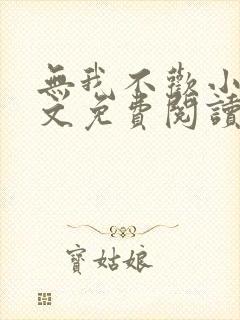 無我不歡小
文免費閱讀
寶姑娘